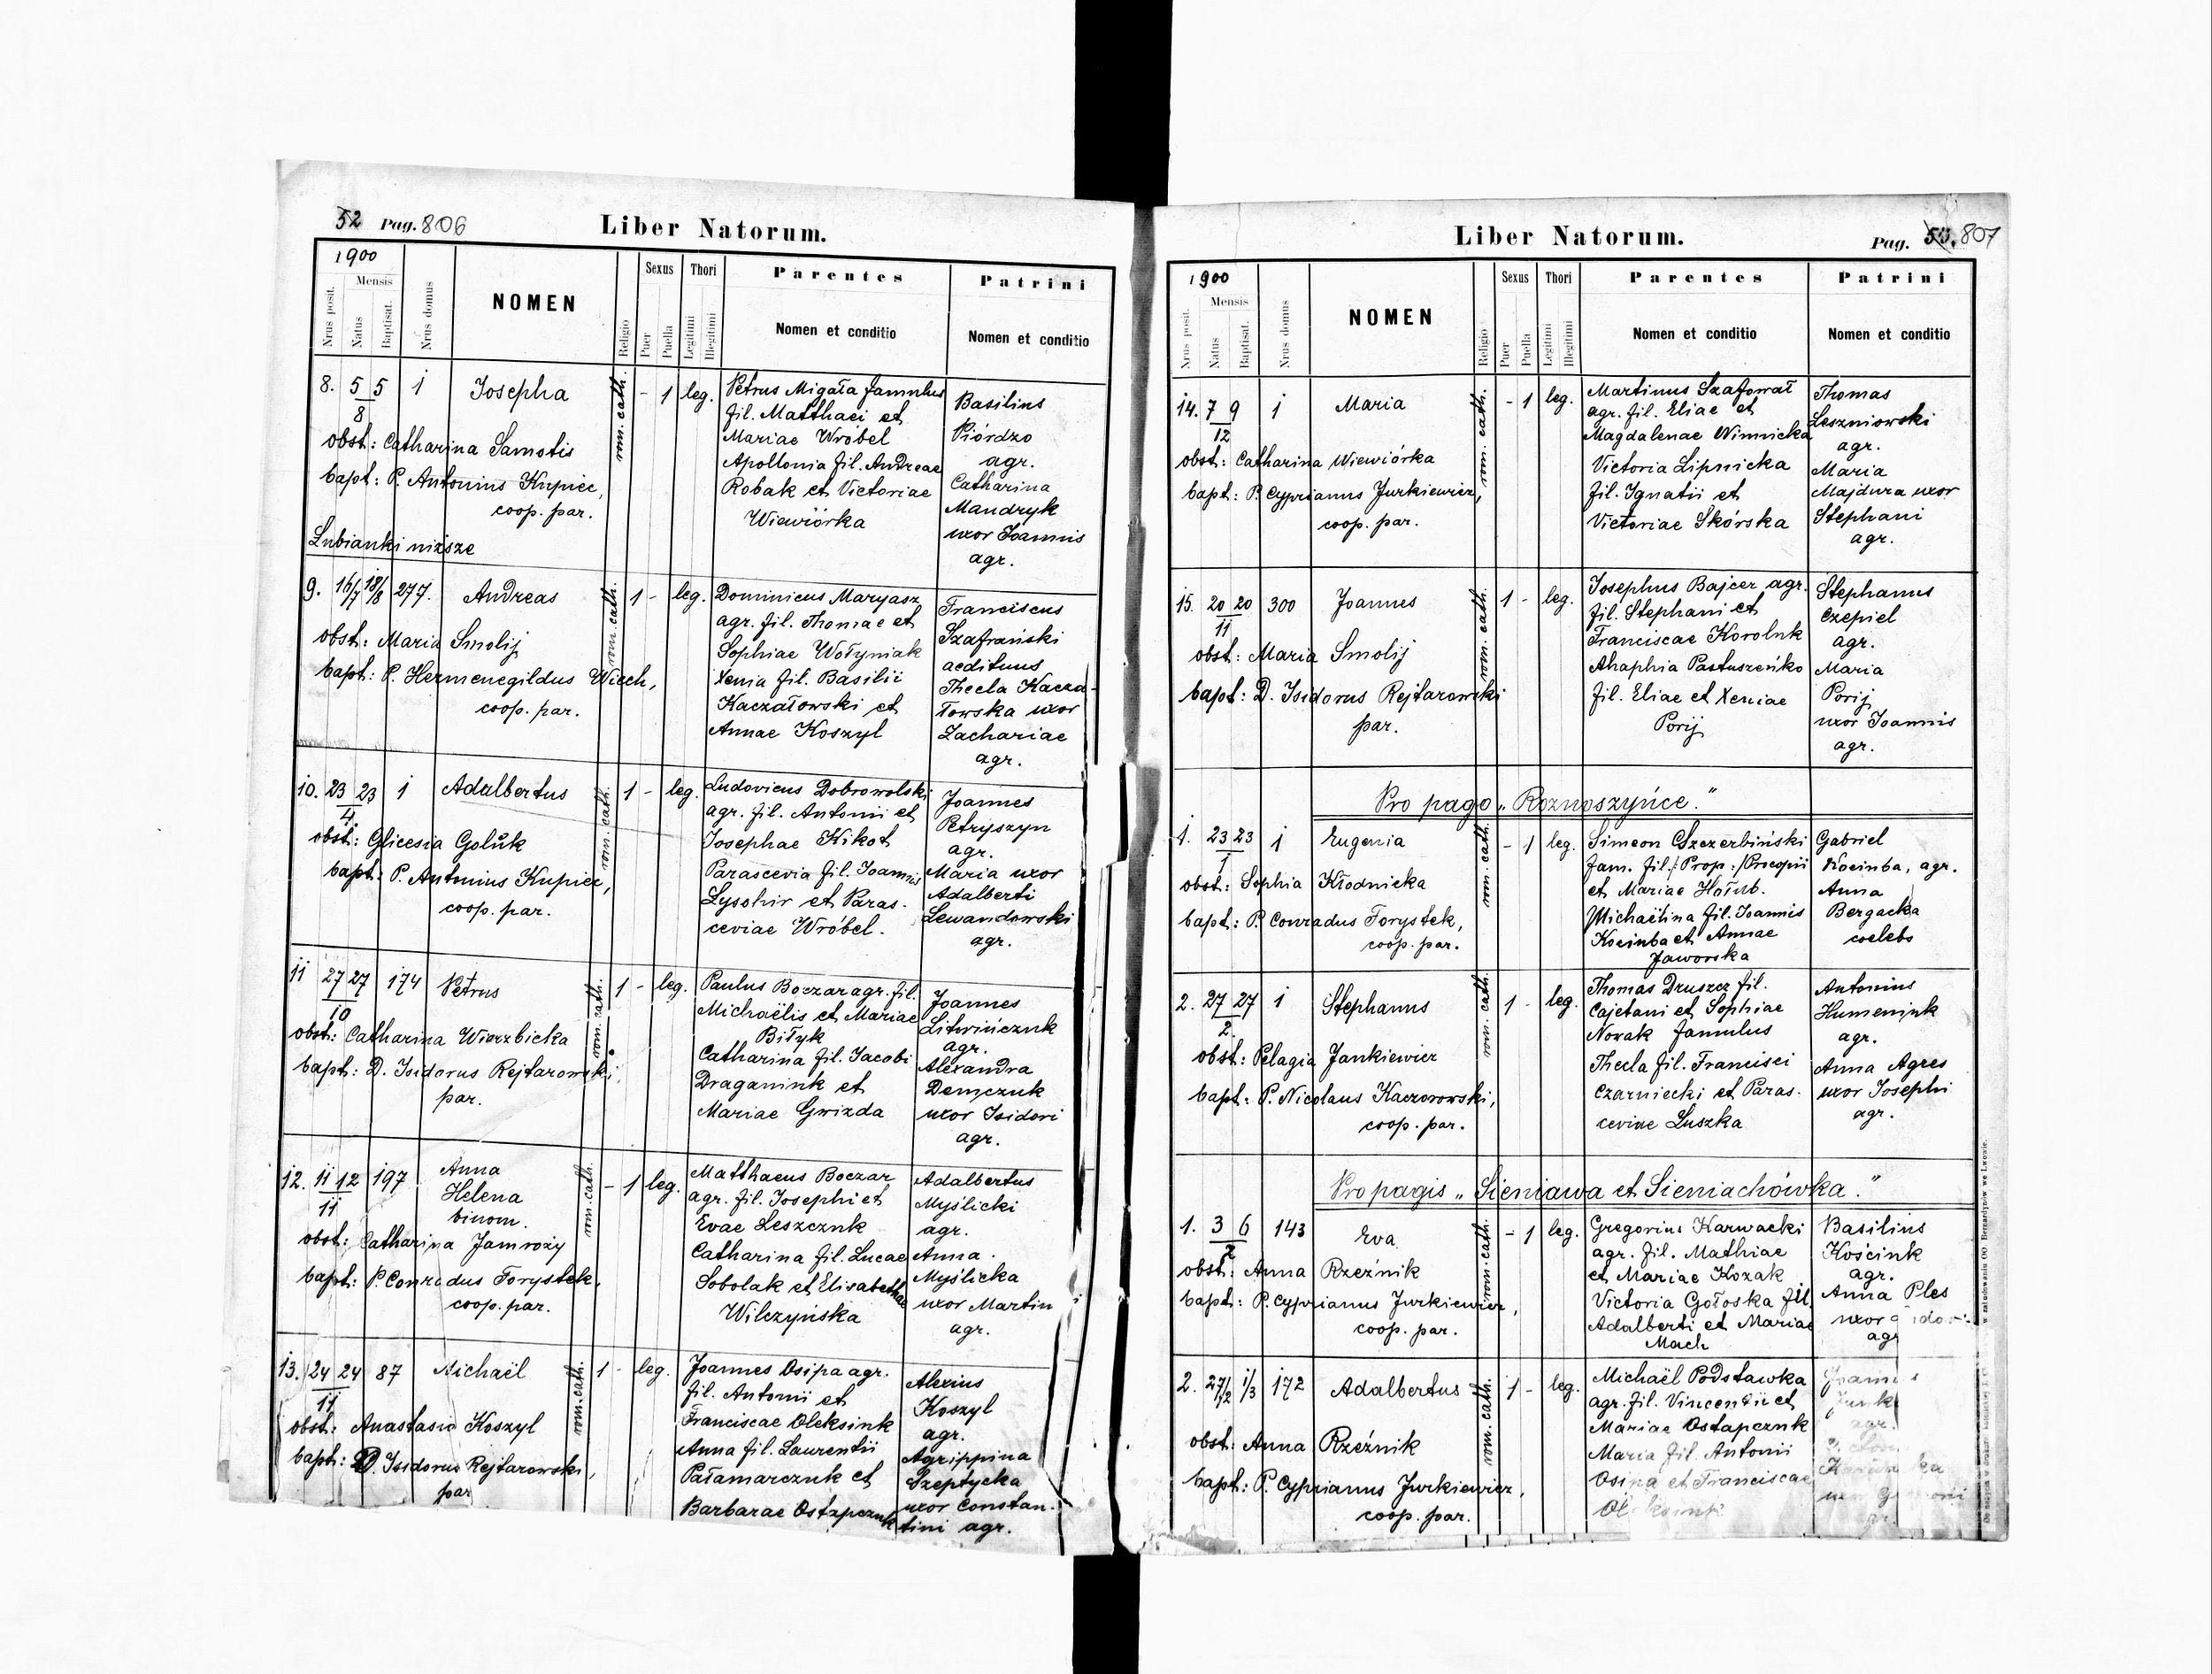 52 Pag. 806
Liber Natorum.
1900
Nrus posit.
Mensis
Natus
Baptisat.
Nrus domus
NOMEN
Religio
Sexus
Puer
Puella
Thori
Legitimi
Illegitimi
Parentes
Nomen et conditio
Patrini
Nomen et conditio
8. 5/8 5 1 Josepha rom. cath. - 1 leg.
obst: Catharina Samotis
bapt: P. Antonius Kupiec,
coop. par.
Lubianki niższe
Petrus Migała famulus
fil. Matthaei et
Mariae Wróbel
Apollonia fil. Andreae
Robak et Victoriae
Wiewiórka
Basilius
Piórdzo
agr.
Catharina
Mandryk
uxor Joannis
agr.
9. 16/7 18/8 277. Andreas rom. cath. 1 - leg.
obst: Maria Smolij
bapt: P. Hermenegildus Wiech,
coop. par.
Dominicus Maryasz
agr. fil. Thomae et
Sophiae Wołyniak
Xenia fil. Basilii
Kaczałowski et
Annae Koszyl
Franciscus
Szafrański
aedituus
Thecla Kacza-
łowska uxor
Zachariae
agr.
10. 23 23/4. 1 Adalbertus rom. cath. 1 - leg.
obst: Glicesia Goluk
bapt: P. Antonius Kupiec,
coop. par.
Ludovicus Dobrowolski
agr. fil. Antonii et
Josephae Kikot
Parascevia fil. Joannis
Lysohir et Paras-
ceviae Wróbel.
Joannes
Petryszyn
agr.
Maria uxor
Adalberti
Lewandowski
agr.
11 27 27/10 174 Petrus rom. cath. 1 - leg.
obst: Catharina Wierzbicka
bapt: D. Isidorus Rejtarowski,
par.
Paulus Boczar agr. fil.
Michaëlis et Mariae
Biłyk
Catharina fil. Jacobi
Draganiuk et
Mariae Gwizda
Joannes
Litwińczuk
agr.
Alexandra
Demczuk
uxor Isidori
agr.
12. 11 12/11 197 Anna
Helena
binom.
rom. cath. - 1 leg.
obst: Catharina Jamroży
bapt: P. Conradus Forystek,
coop. par.
Matthaeus Boczar
agr. fil. Josephi et
Evae Leszczuk
Catharina fil. Lucae
Sobolak et Elisabethae
Wilczyńska
Adalbertus
Myślicki
agr.
Anna
Myślicka
uxor Martini
agr.
13. 24 24/11 87 Michaël rom. cath. 1 - leg.
obst: Anastasia Koszyl
bapt: D. Isidorus Rejtarowski,
par
Joannes Osipa agr.
fil. Antonii et
Franciscae Oleksiuk
Anna fil. Laurentii
Pałamarczuk et
Barbarae Ostapczuk
Alexius
Koszyl
agr.
Agrippina
Szeptycka
uxor Constan-
tini agr.
Liber Natorum.
Pag. 53. 807
1900
Nrus posit.
Mensis
Natus
Baptisat.
Nrus domus
NOMEN
Religio
Sexus
Puer
Puella
Thori
Legitimi
Illegitimi
Parentes
Nomen et conditio
Patrini
Nomen et conditio
14. 7 9/12 1 Maria rom. cath. - 1 leg.
obst: Catharina Wiewiórka
bapt: P. Cyprianus Jurkiewicz,
coop. par.
Martinus Szafował
agr. fil. Eliae et
Magdalenae Winnicka
Victoria Lipnicka
fil. Ignatii et
Victoriae Skórska
Thomas
Leszniowski
agr.
Maria
Majdura uxor
Stephani
agr.
15. 20 20/11 300 Joannes rom. cath. 1 - leg.
obst: Maria Smolij
bapt: D. Isidorus Rejtarowski
par.
Josephus Bajcer agr.
fil. Stephani et
Franciscae Koroluk
Ahaphia Pastuszeńko
fil. Eliae et Xeniae
Porij
Stephanus
Czepiel
agr.
Maria
Porij
uxor Joannis
agr.
Pro pago „Roznoszyńce."
1. 23 23/1 1 Eugenia rom. cath. - 1 leg.
obst: Sophia Kłodnicka
bapt: P. Conradus Forystek,
coop. par.
Simeon Szczerbiński
fam. fil. /: Prop :/ Procopii
et Mariae Hołub.
Michaëlina fil. Joannis
Kociuba et Annae
Jaworska
Gabriel
Kociuba, agr.
Anna
Bergacka
coelebs
2. 27 27/2. 1 Stephanus rom. cath. 1 - leg.
obst: Pelagia Jankiewicz
bapt: P. Nicolaus Kaczorowski,
coop. par.
Thomas Druszcz fil.
Cajetani et Sophiae
Nowak famulus
Thecla fil. Francisci
Czarniecki et Paras-
ceviae Luszka
Antonius
Humeniuk
agr.
Anna Agres
uxor Josephi
agr.
Pro pagis „Sieniawa et Sieniachówka."
1. 3 6/2 143 Eva rom. cath. - 1 leg.
obst: Anna Rzeźnik
bapt: P. Cyprianus Jurkiewicz,
coop. par.
Gregorius Karwacki
agr. fil. Mathiae
et Mariae Kozak
Victoria Gołoska fil.
Adalberti et Mariae
Mach
Basilius
Kościuk
agr.
Anna Ples
uxor
agr
2. 27/2 1/3 172 Adalbertus rom. cath. 1 - leg.
obst: Anna Rzeźnik
bapt: P. Cyprianus Jurkiewicz,
coop. par.
Michaël Podstawka
agr. fil. Vincentii et
Mariae Ostapczuk
Maria fil. Antonii
Osipa et Franciscae
agr.